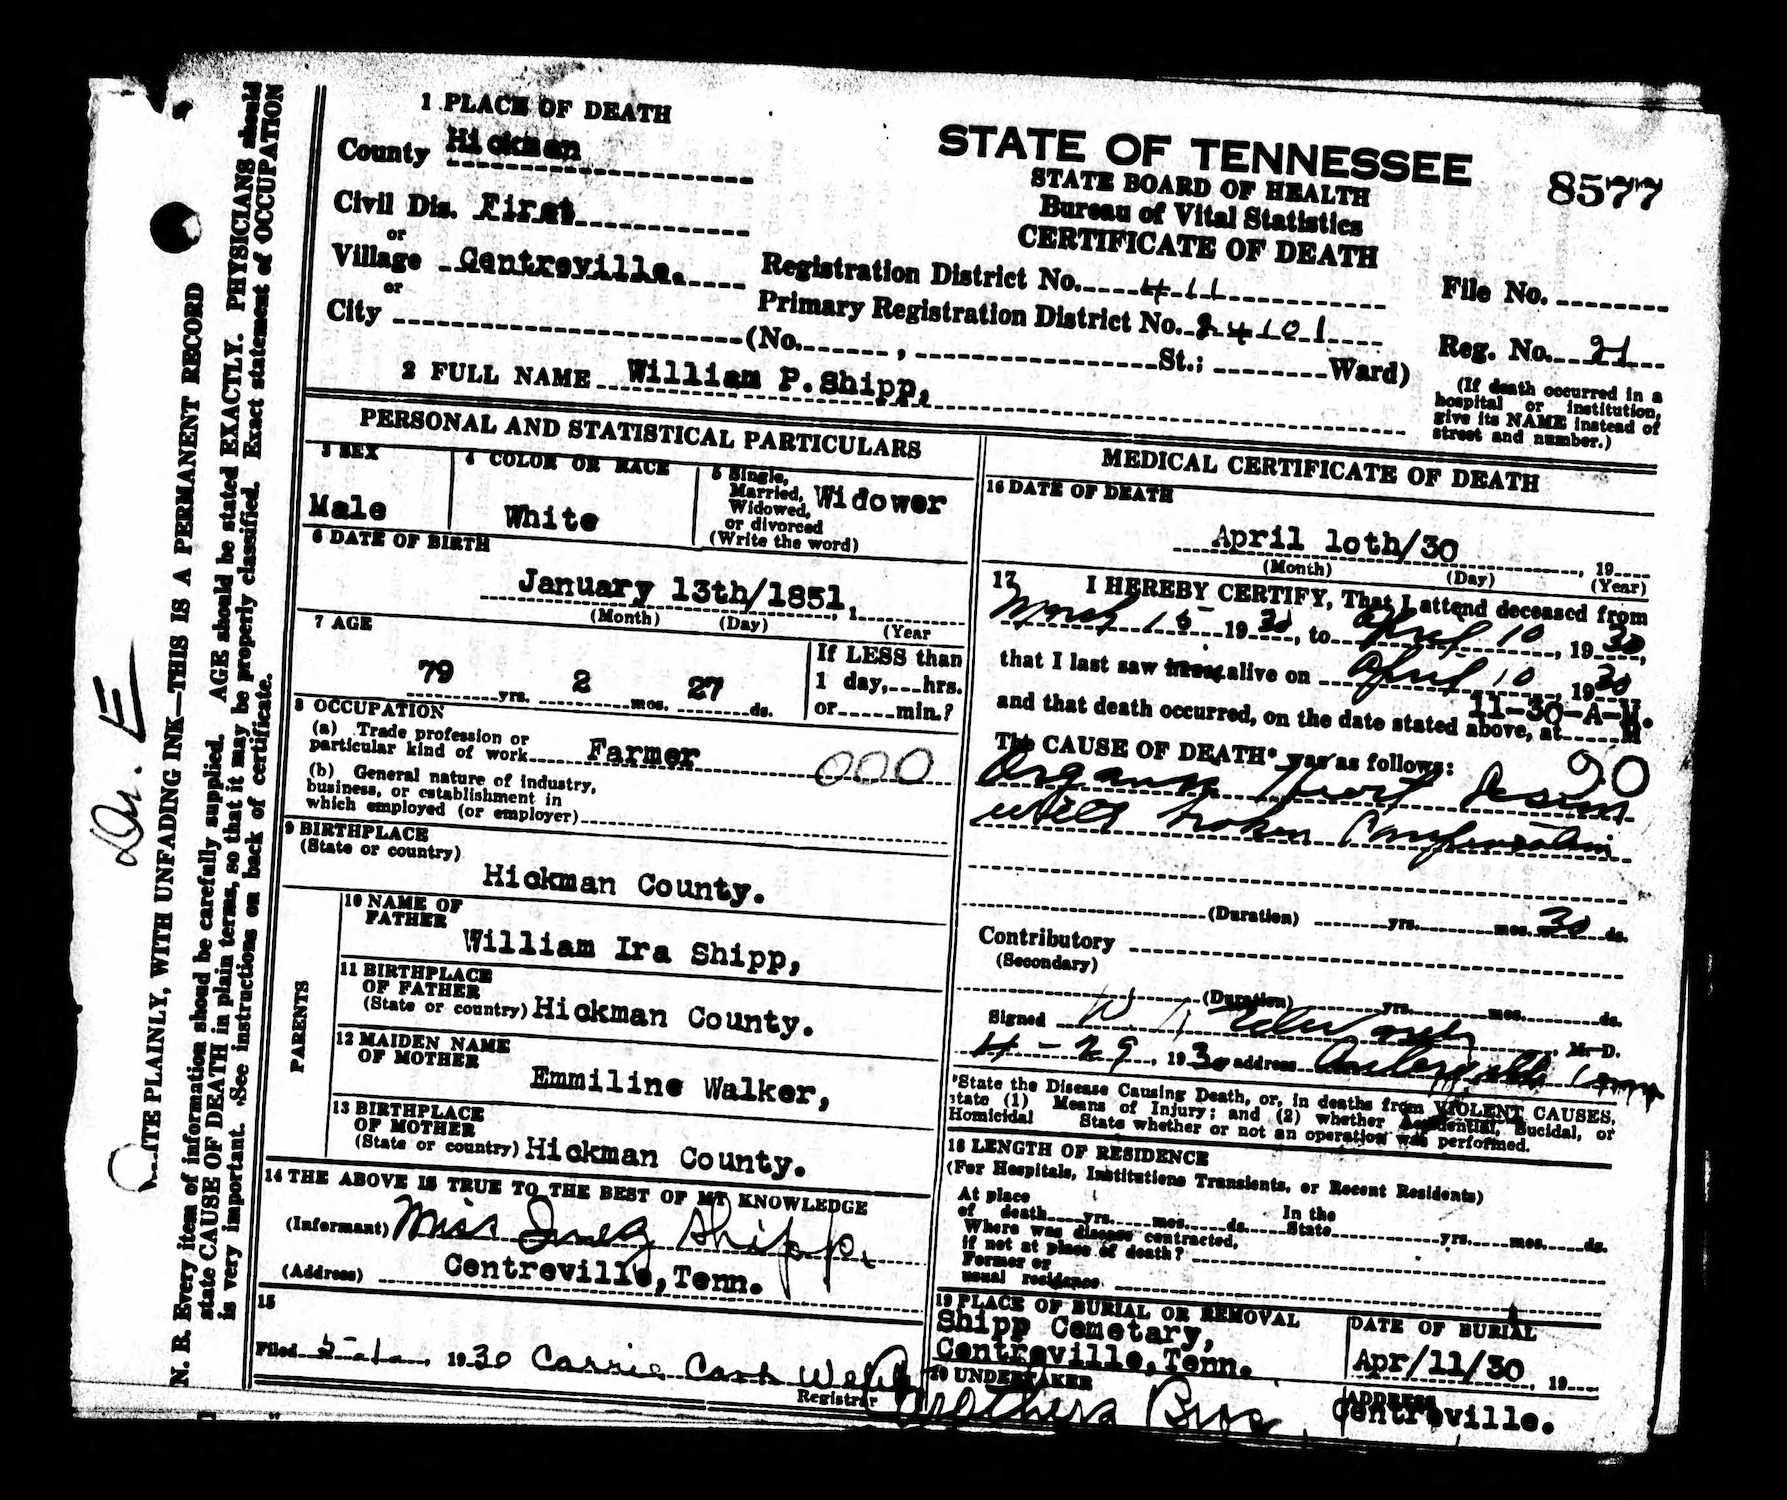 1 PLACE OF DEATH
County Hickman
Civil Dis. First
or
Village Centreville.
or
City
(No. , St.; Ward)
STATE OF TENNESSEE
STATE BOARD OF HEALTH
Bureau of Vital Statistics
CERTIFICATE OF DEATH
8577
Registration District No. 411
Primary Registration District No. 24101
File No.
Reg. No. 21
(If death occurred in a
hospital or institution,
give its NAME instead of
street and number.)
2 FULL NAME William P. Shipp,
PERSONAL AND STATISTICAL PARTICULARS
3 SEX
Male
4 COLOR OR RACE
White
5 Single,
Married,
Widowed,
or divorced
(Write the word)
Widower
6 DATE OF BIRTH
January 13th/1851, , 1
(Month) (Day) (Year
7 AGE
79 yrs. 2 mos. 27 ds.
If LESS than
1 day, hrs.
or min.?
8 OCCUPATION
(a) Trade profession or
particular kind of work Farmer
000
(b) General nature of industry,
business, or establishment in
which employed (or employer)
9 BIRTHPLACE
(State or country)
Hickman County.
PARENTS
10 NAME OF
FATHER
William Ira Shipp,
11 BIRTHPLACE
OF FATHER
(State or country) Hickman County.
12 MAIDEN NAME
OF MOTHER
Emmiline Walker,
13 BIRTHPLACE
OF MOTHER
(State or country) Hickman County.
14 THE ABOVE IS TRUE TO THE BEST OF MY KNOWLEDGE
(Informant) Miss Shipp,
(Address) Centreville, Tenn.
15
Filed 5-1- , 1930 Carrie Cash
Registrar
MEDICAL CERTIFICATE OF DEATH
16 DATE OF DEATH
April 1oth/30 , 19
(Month) (Day) (Year)
17 I HEREBY CERTIFY, That I attend deceased from
March 15 1930, to April 10, 1930,
that I last saw alive on April 10, 1930
and that death occurred, on the date stated above, at 11-30-A-M. M
The CAUSE OF DEATH* was as follows:
90
Organic Heart Disease
with broken Compensation
(Duration) yrs. mos. 30 ds.
Contributory
(Secondary)
(Duration) yrs. mos. ds.
Signed W K Edwards, M. D.
4-29, 1930 address Centerville Tenn
*State the Disease Causing Death, or, in deaths from VIOLENT CAUSES,
state (1) Means of Injury; and (2) whether Accidential, Sucidal, or
Homicidal State whether or not an operation was performed.
18 LENGTH OF RESIDENCE
(For Hospitals, Institutions Transients, or Recent Residents)
At place
of death yrs. mos. ds.
In the
State yrs. mos. ds.
Where was disease contracted,
if not at place of death?
Former or
usual residence
19 PLACE OF BURIAL OR REMOVAL
Shipp Cemetary,
Centreville, Tenn.
DATE OF BURIAL
Apr/11/30 , 19
20 UNDERTAKER
Bros.
ADDRESS
Centreville.
N. B. Every item of information shoud be carefully supplied. AGE should be stated EXACTLY. PHYSICIANS should
state CAUSE OF DEATH in plain terms, so that it may be properly classified. Exact statement of OCCUPATION
is very important. See instructions on back of certificate.
PLAINLY, WITH UNFADING INK—THIS IS A PERMANENT RECORD
Dr. E